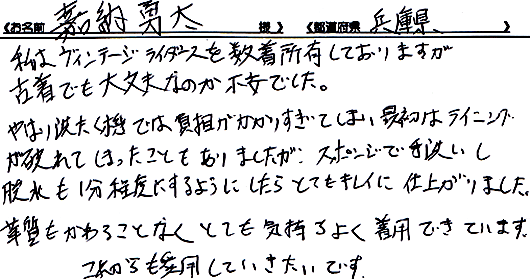 《お名前 嘉納 勇太 様 》《都道府県 兵庫県 》
私は ヴィンテージ ライダースを 数着所有しておりますが
古着でも 大丈夫なのか 不安でした。
やはり 洗たく機では 負担がかかりすぎてしまい 最初は ライニング
が破れて しまったことも ありましたが、スポンジで 手洗いし
脱水も 1分程度にするように したら とてもキレイに 仕上がりました。
革質も かわることなく とても 気持ちよく 着用できています。
これからも愛用していきたいです。